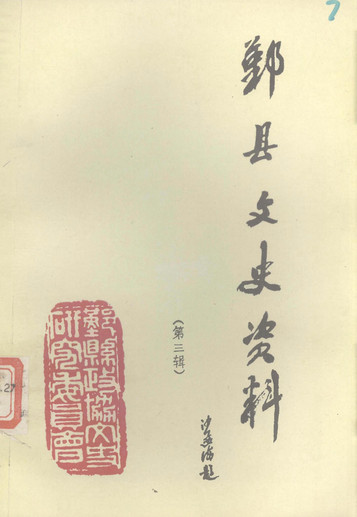 7
鄞县文史资料
(第三辑)
沙孟海题
鄞縣政協文史
研究委員會